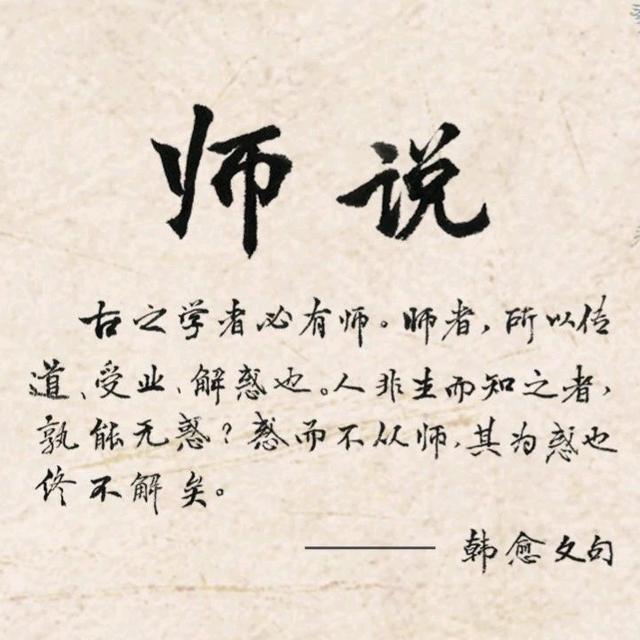 师说
古之学者必有师。师者，所以传
道、受业、解惑也。人非生而知之者，
孰能无惑？惑而不从师，其为惑也
终不解矣。
——— 韩愈文句